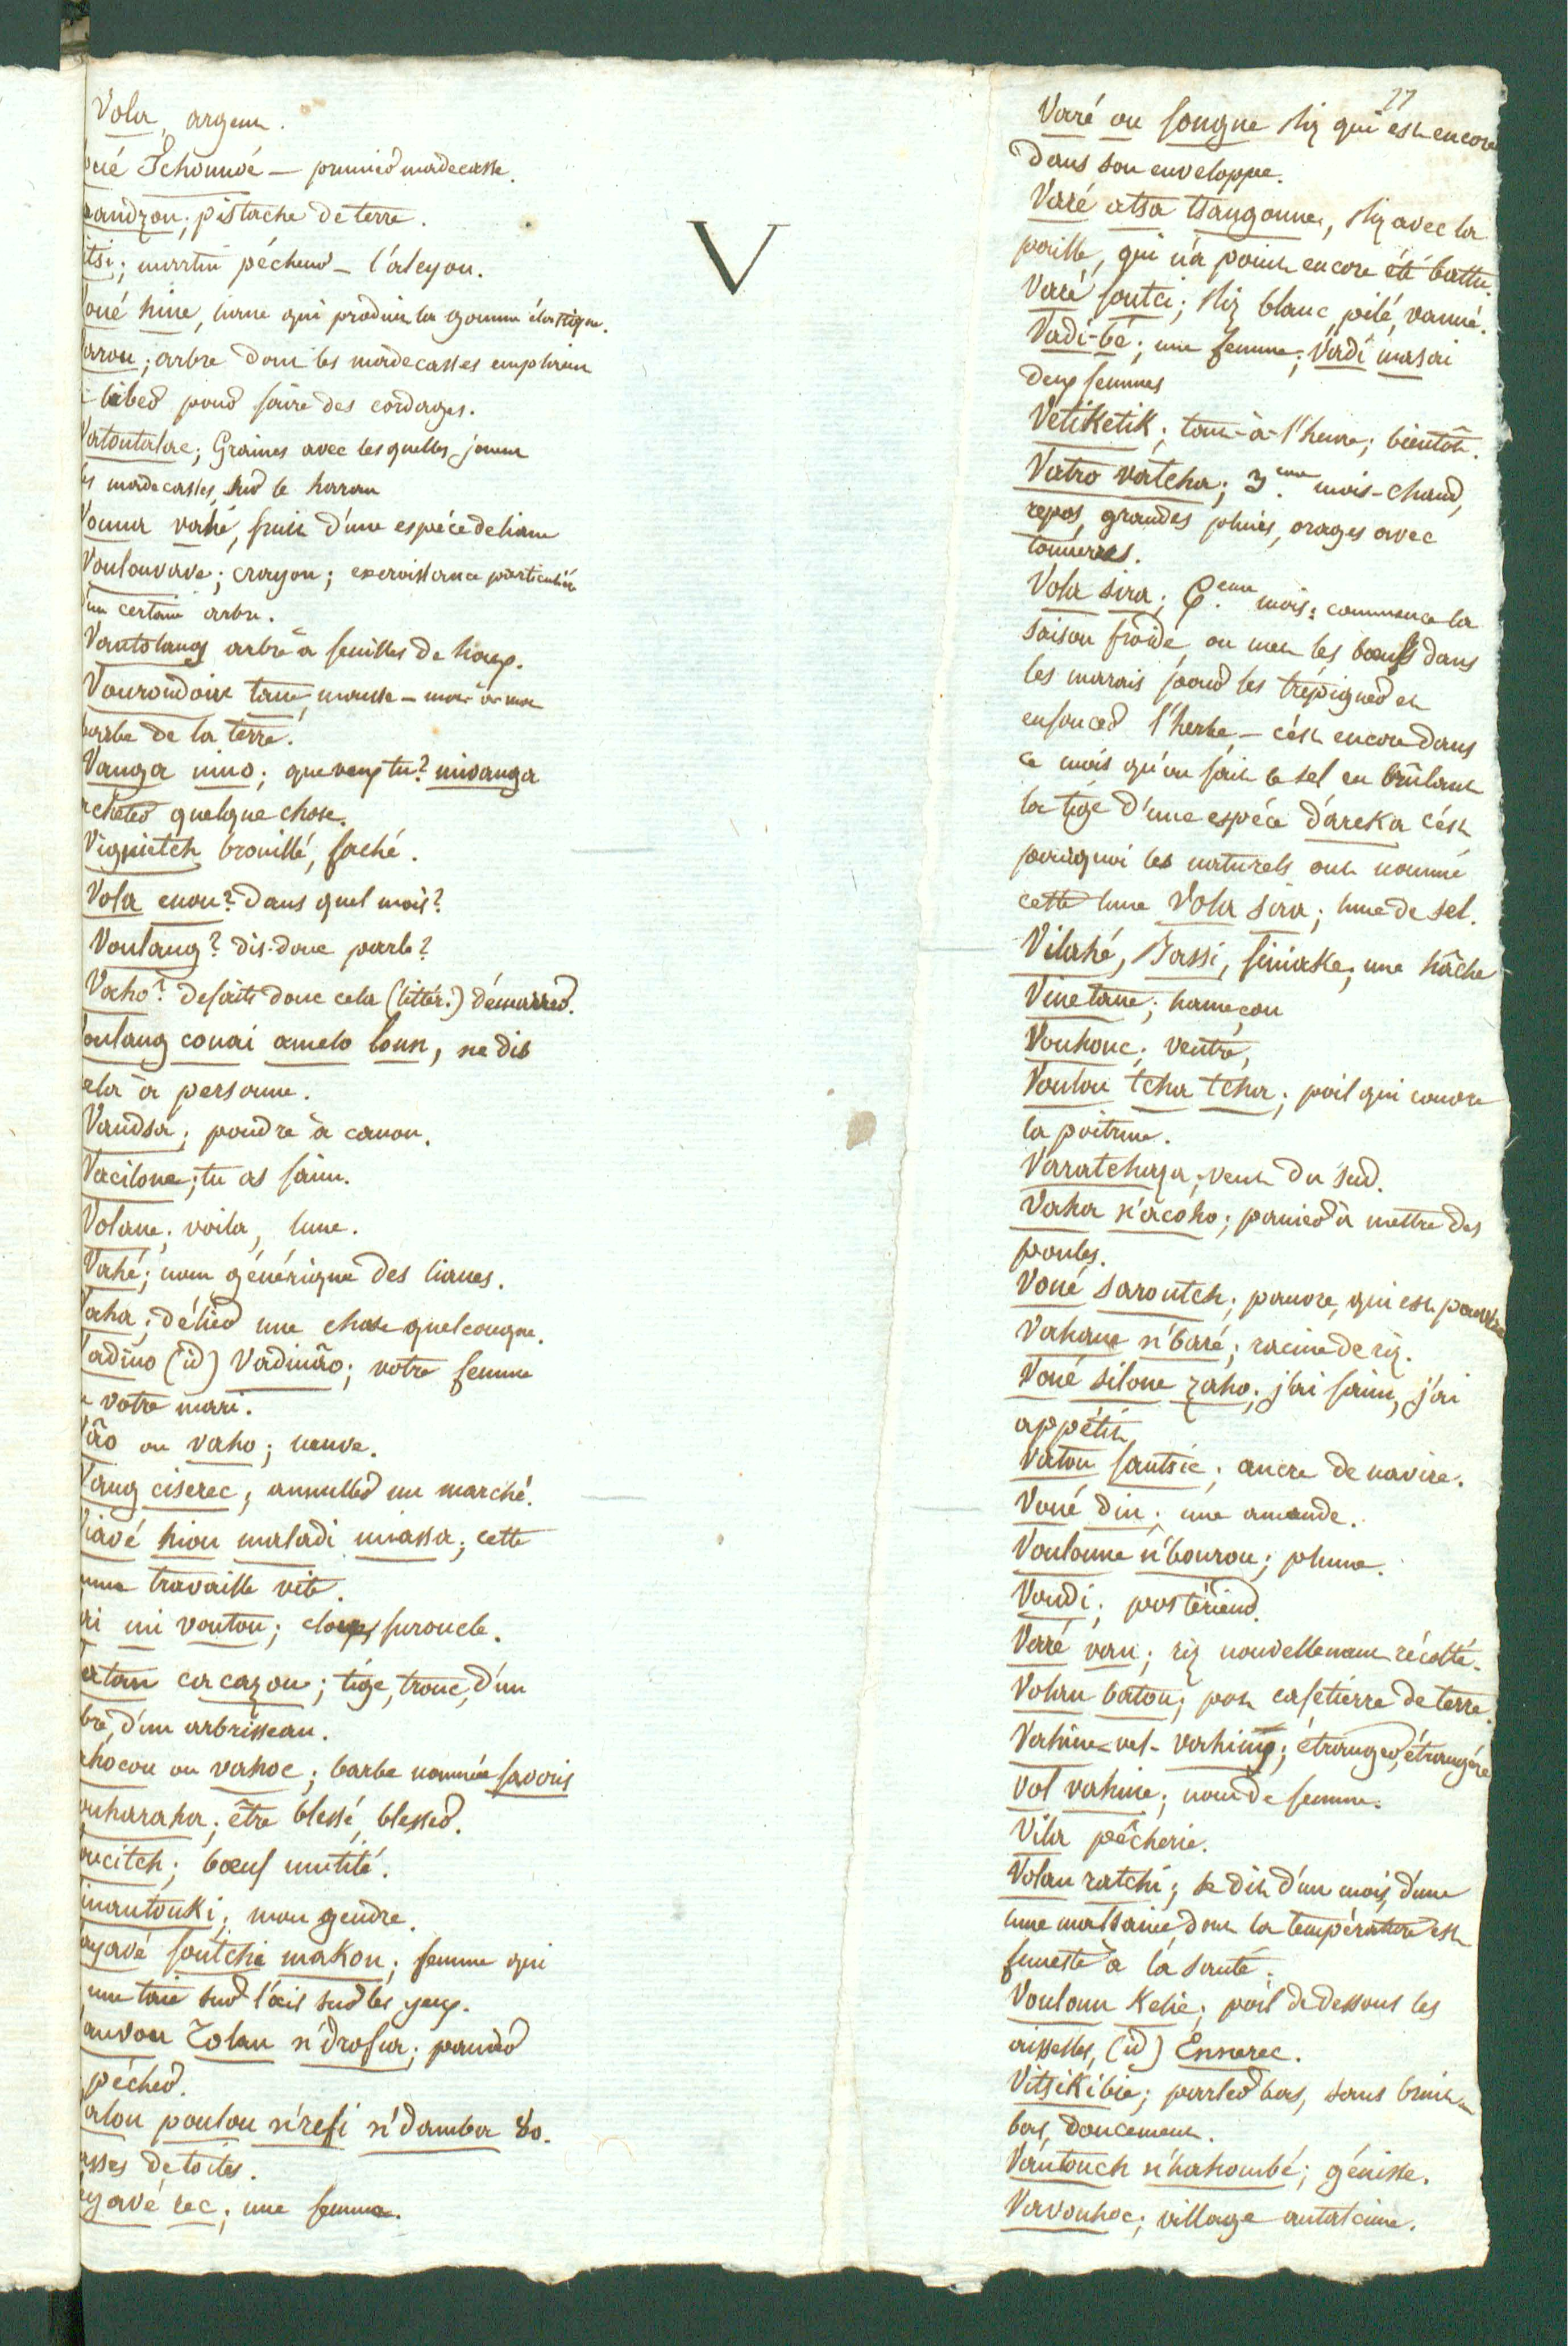 Vola, argent.
oué Tchoundé — prunier madecasse.
oandzou; pistache de terre.
itsi; martin pécheur — l'alcyon.
Voué hine, liane qui produit la gomme élastique.
arou; arbre dont les madecasses emploient
liber pour faire des cordages.
Vatoutalae; Graines avec lesquelles jouent
les madecasses, sur le
Voua vahé, fruit d'une espéce de liane
Voulouvave; crayon; excroissance particulière
d'un certain arbre.
Vantolang arbre à feuilles de houx.
Vourondoik tane, mousse — mot à mot
barbe de la terre.
Vanga nino; que veux tu? mivanga
acheter quelque chose.
Vignietch brouillé, faché.
Vola enou? dans quel mois?
Voulang? dis-donc parle?
Vaho? defaits donc cela (littér.) démarrer.
Voulang couai amelo loun, ne dis
cela à personne.
Vandsa; poudre à canon.
Vacilone; tu as faim.
Volane; voila, lune.
Vahé; nom générique des lianes.
Vaha; délier une chose quelconque.
Vadino (id) Vadinão; votre femme
votre mari.
Vão ou vaho; neuve.
Vang ciserec; annuller un marché.
Viavé hiou maladi miassa; cette
femme travaille vite.
ri mi voutou; cloux, furoncle.
atan cacazou; tíge, tronc, d'un
arbre, d'un arbrisseau.
ahocou ou vahoc; barbe nommée favoris
ouharaha; être blessé, blesser.
oucitch; bœuf mutilé.
inantouki; mon gendre.
ayavé foutchi makou; femme qui
une taie sur l'œil sur les yeux.
anvou Tolan n'drofia; panier
pécher.
alou poulou n'refi n'damba 80.
brasses de toiles.
ayavé rec; une femme.
V
27
Varé ou fongne Riz qui est encore
dans son enveloppe.
Varé atsa tsangonne, Riz avec la
paille, qui n'a point encore été battu.
Varé foutci; Riz blanc, pilé, vanné.
Vadi-bé; une femme; Vadi masai
deux femmes
Vetiketik; tout-à-l'heure; bientôt.
Vatro vatcha; 3.eme mois - chaud,
repos, grandes pluies, orages avec
tonnerres.
Vola sira; 6.eme mois: commence la
saison froide, on met les bœufs dans
les marais pour les trépigner et
enfoncer l'herbe — c'est encore dans
ce mois qu'on fait le sel en brûlant
la tíge d'une espéce d'areka c'est
pourquoi les naturels ont nommé
cette lune Vola sira; lune de sel.
Vilahé, Fassi, finiake; une hâche
Vinetane; hameçon
Vouhouc; ventre,
Voulou tcha tcha; poil qui couvre
la poitrine.
Varatchaza; vent du sud.
Vaha n'acoho; panier à mettre des
poules.
Voué saroutch; pauvre, qui est pauvre
Vahane n'baré; racine de riz.
Voué silone zaho; j'ai faim, j'ai
appétit
Vatou fantsic; ancre de navire.
Voué din; une amande.
Voulonne n'bourou; plume.
Voudi; postérieur.
Varé vau; riz nouvellement récolté.
Volan batou; pot cafetière de terre.
Vahine-vel-vahiny; étranger, étrangére
Vol vahine; nom de femme.
Vila pêcherie.
Volan ratchi; se dit d'un mois, d'une
lune malsaine, dont la température est
funeste à la santé.
Vouloun Kelie; poil de dessous les
aisselles, (id) Ennerec.
Vitsikibie; parler bas, sans bruit
bas, doucement.
Vantouch n'hahombé; génisse.
Vavouhoc; village antatcime.